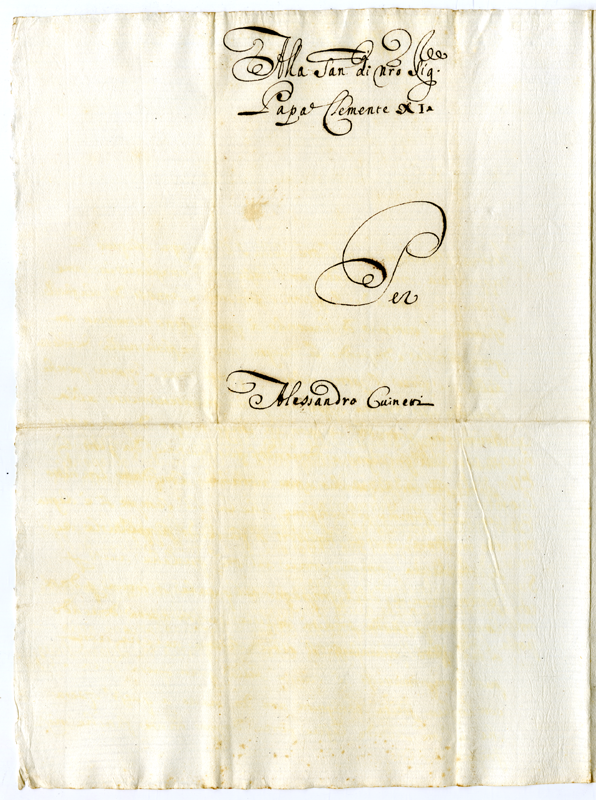 Alla San di Nro Sig.re
Papa Clemente XI
Per
Alessandro Guineri